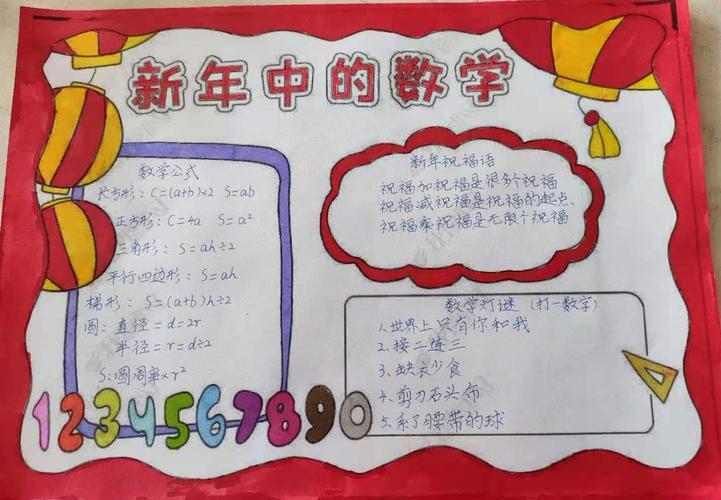 新年中的数学
数学公式
长方形：C=(a+b)×2 S=ab
正方形：C=4a S=a²
三角形：S=ah÷2
平行四边形：S=ah
梯形：S=(a+b)h÷2
圆：直径=d=2r
半径=r=d÷2
S=圆周率×r²
1234567890
新年祝福语
祝福加祝福是很多个祝福
祝福减祝福是祝福的起点、
祝福乘祝福是无限个祝福
数学灯谜（打一数字）
1、世界上只有你和我
2、接二连三
3、缺衣少食
4、剪刀石头布
5、系了腰带的球